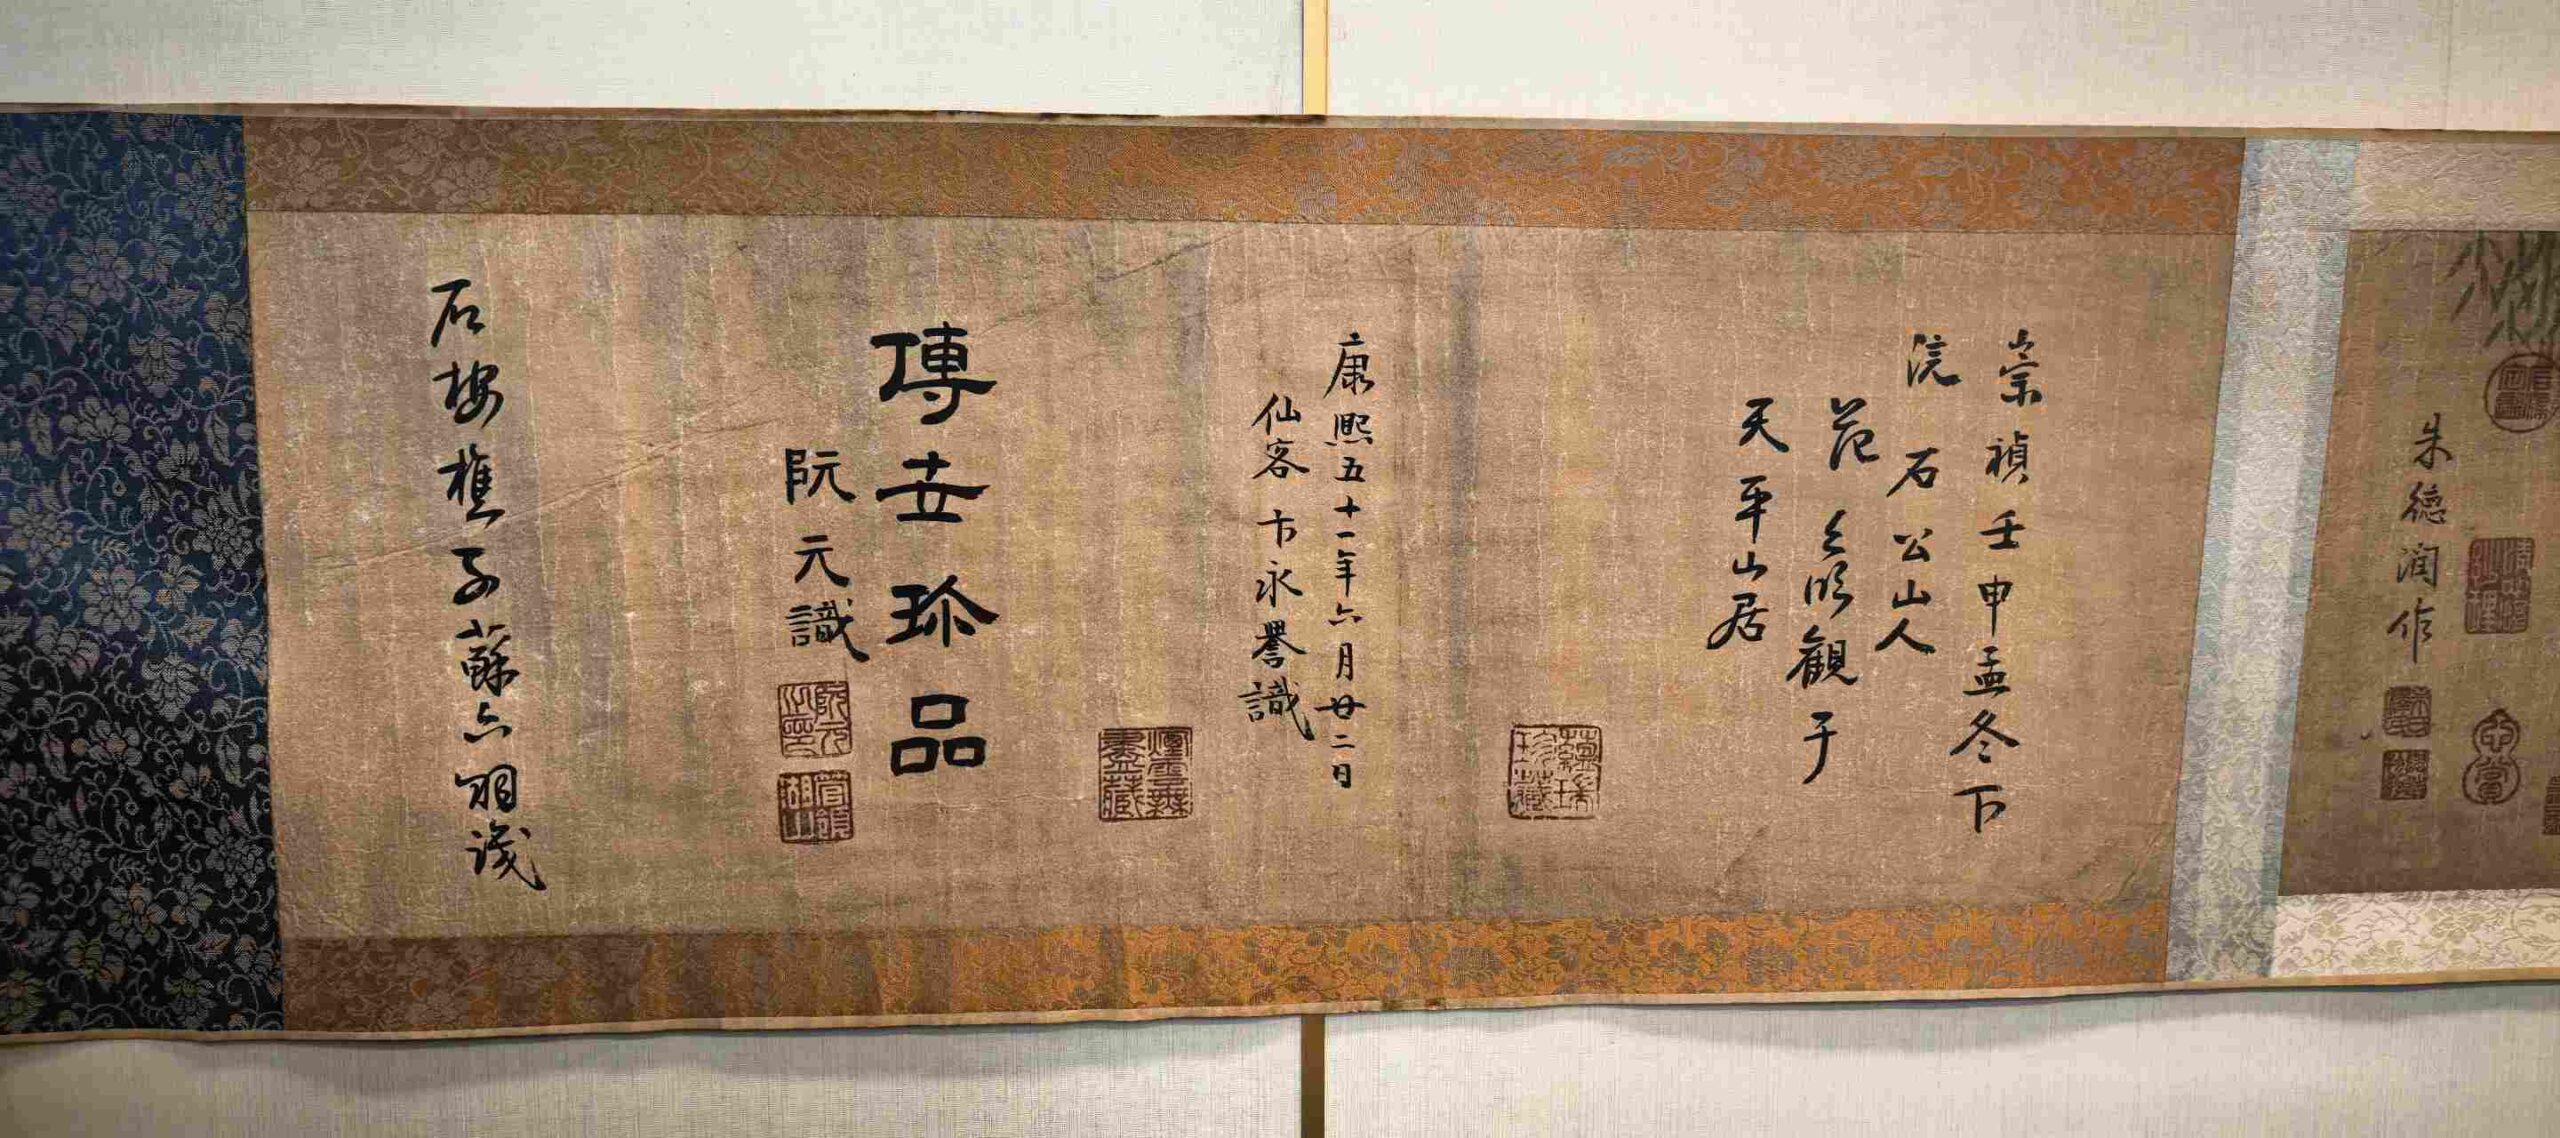 朱德潤作
崇禎壬申孟冬下
浣石公山人
范允臨觀于
天平山居
康熙五十一年六月廿二日
仙客卞永譽識
傳世珍品
阮元識
阮元之印
石樓樵子蘇六朋識